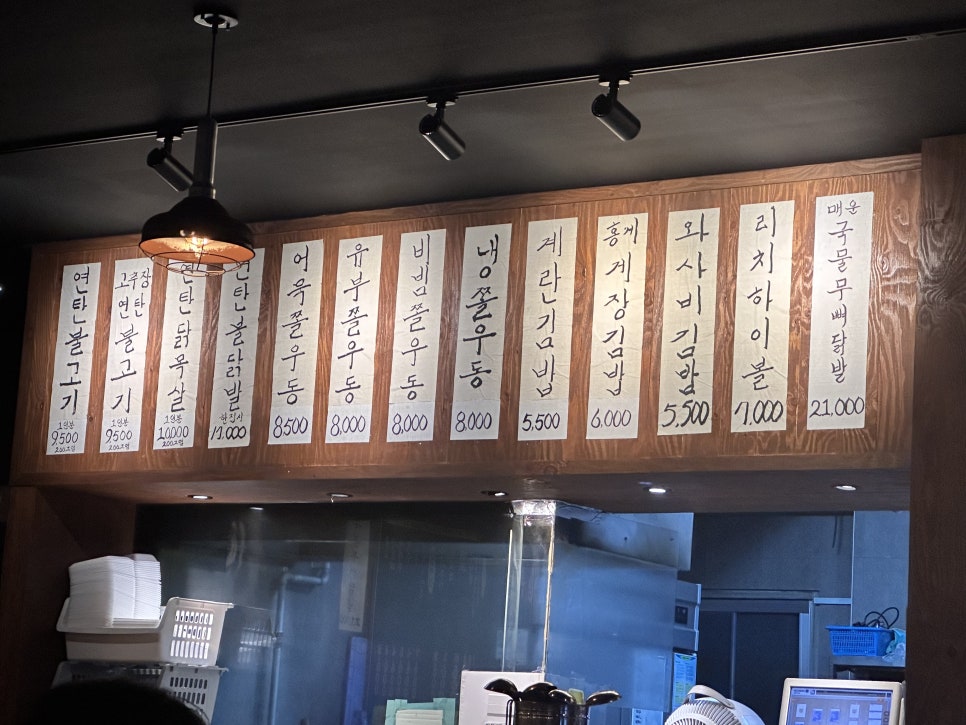 연탄불고기
1인분
9,500
200그램
고추장
연탄
불고기
1인분
9500
200그램
연탄닭목살
1인분
10,000
200그램
연탄불닭발
한접시
17,000
어묵쫄우동
8,500
유부쫄우동
8,000
비빔쫄우동
8,000
냉쫄우동
8,000
계란김밥
5,500
홍게
게장김밥
6,000
와사비김밥
5,500
리치하이볼
7,000
매운
국물무뼈닭발
21,000